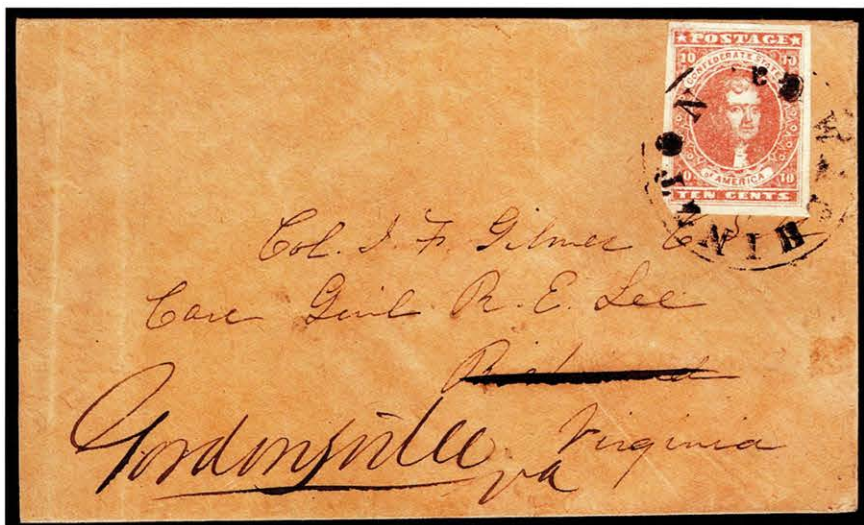 ★POSTAGE★
10 10
CONFEDERATE STATES
of AMERICA
10 10
TEN CENTS
Col. J. F. Gilmer
Care Genl R. E. Lee
Richmond
Virginia
Gordonsville
Va